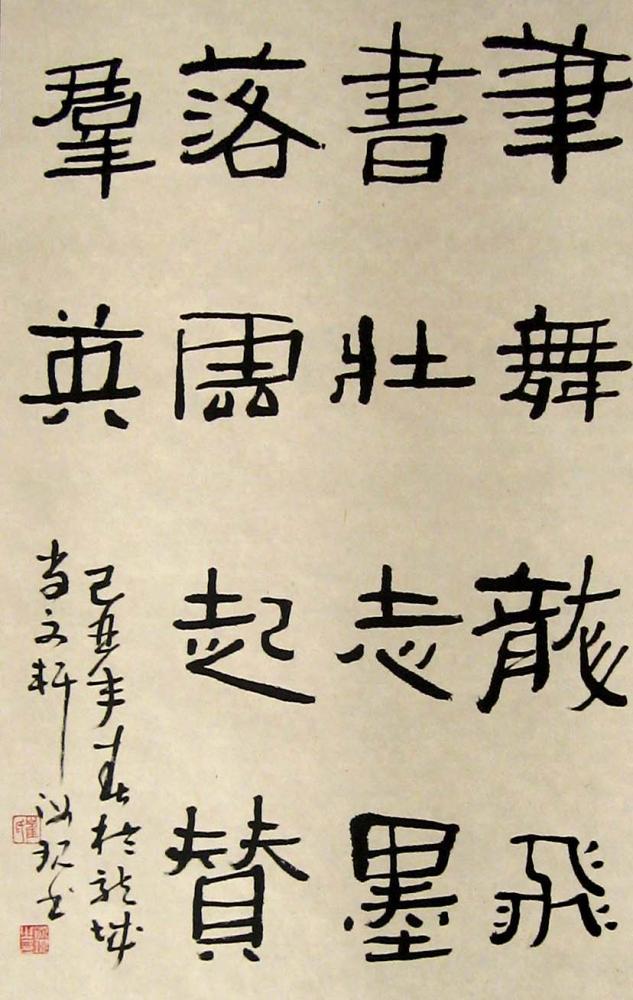 筆舞龍飛
書壯志墨
落雲起贊
羣英
己丑年春於龍城
尚文軒 书